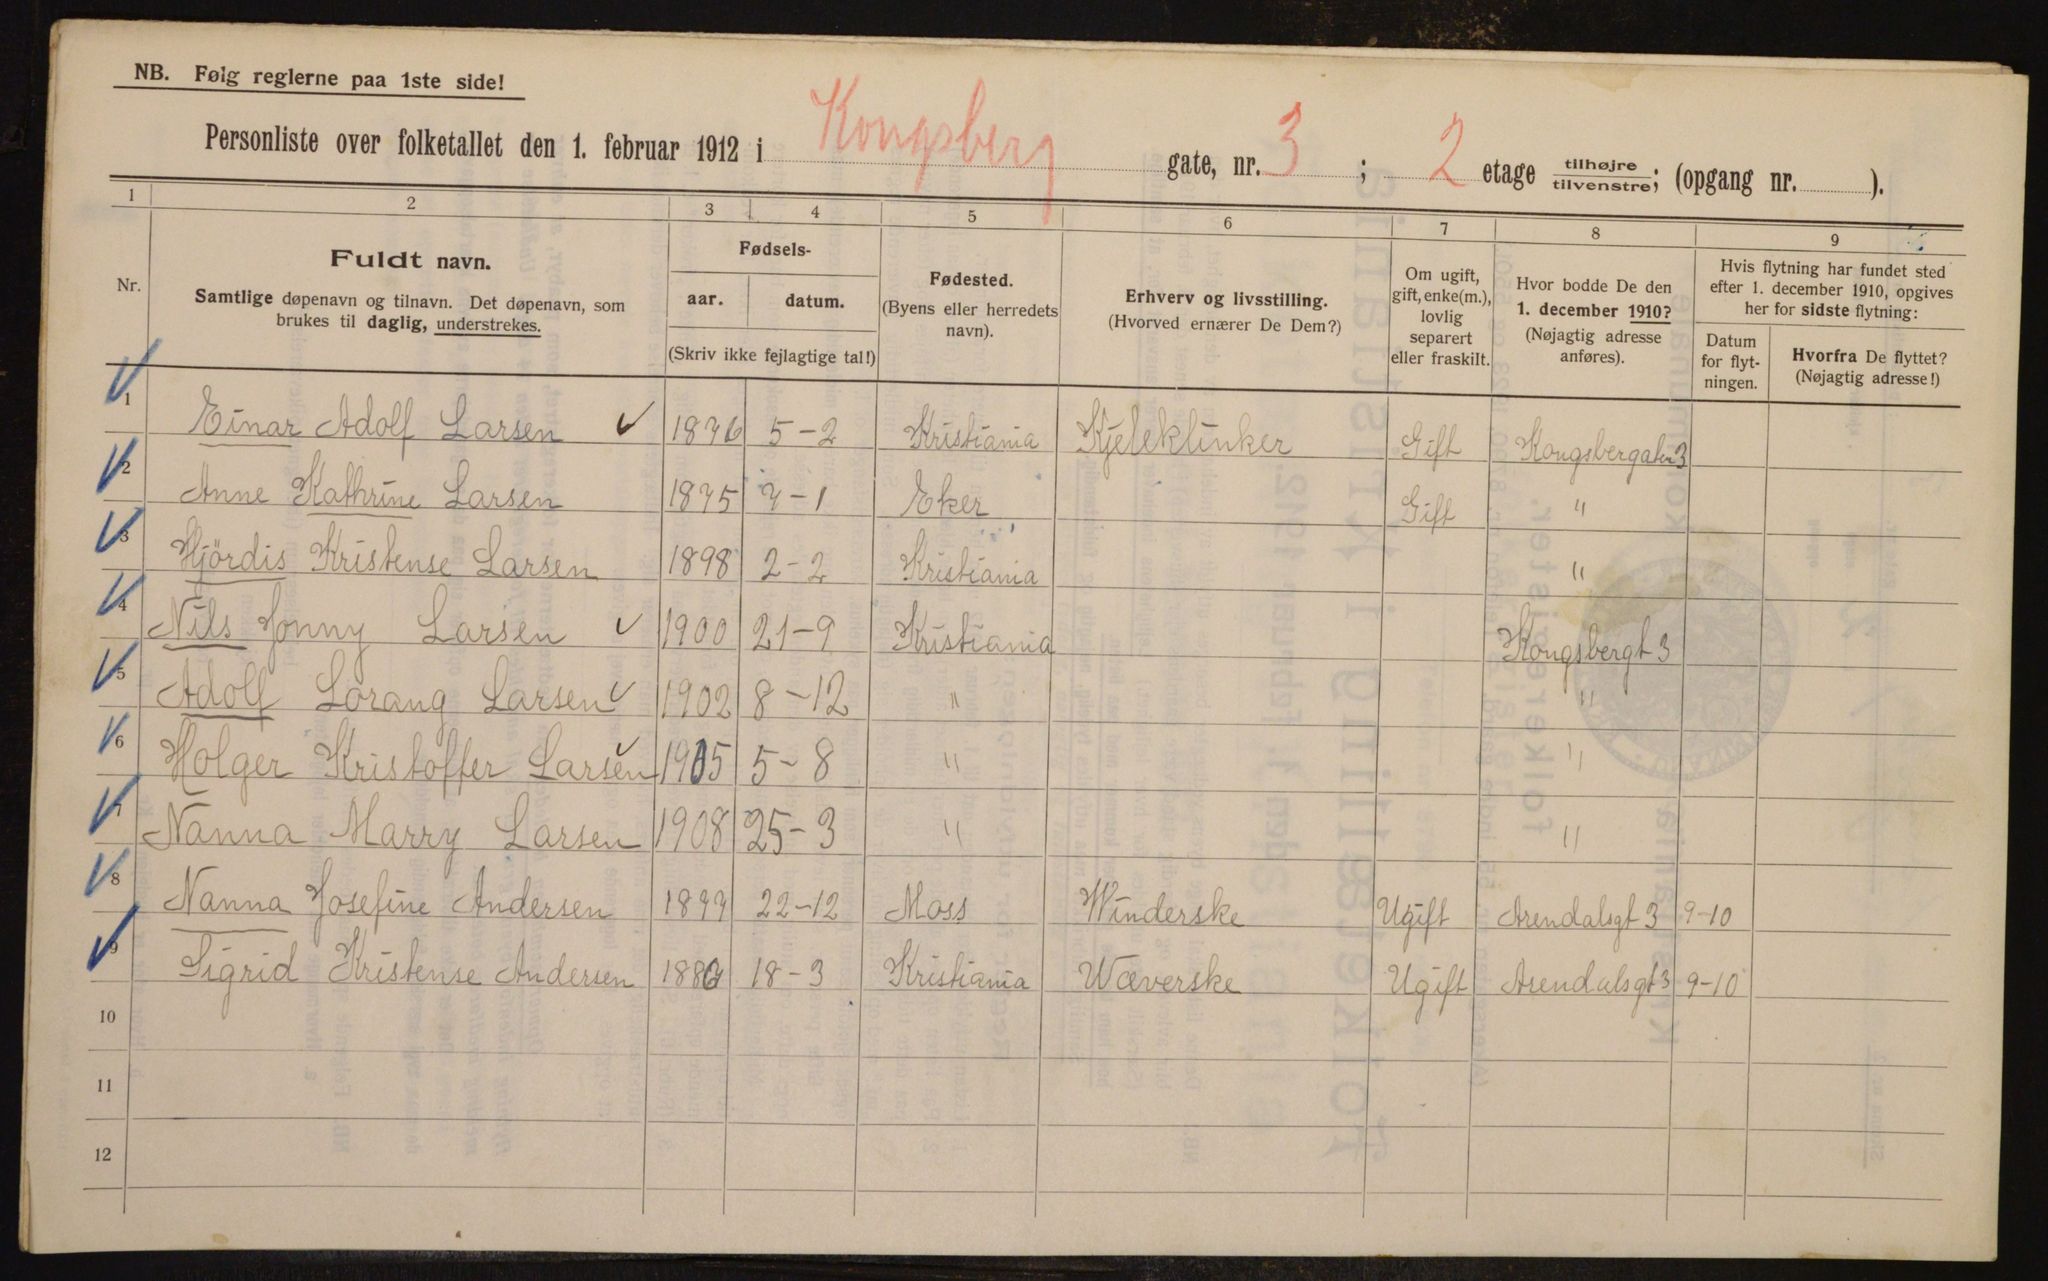 NB. Følg reglerne paa 1ste side!
Personliste over folketallet den 1. februar 1912 i Kongsberg gate, nr. 3 ; 2 etage tilhøjre tilvenstre; (opgang nr. ).
1 2 3 4 5 6 7 8 9
Nr.
Fuldt navn.
Samtlige døpenavn og tilnavn. Det døpenavn, som
brukes til daglig, understrekes.
Fødsels-
aar. datum.
(Skriv ikke fejlagtige tal!)
Fødested.
(Byens eller herredets
navn).
Erhverv og livsstilling.
(Hvorved ernærer De Dem?)
Om ugift,
gift, enke(m.),
lovlig
separert
eller fraskilt.
Hvor bodde De den
1. december 1910?
(Nøjagtig adresse
anføres).
Hvis flytning har fundet sted
efter 1. december 1910, opgives
her for sidste flytning:
Datum
for flyt-
ningen.
Hvorfra De flyttet?
(Nøjagtig adresse!)
1 Einar Adolf Larsen 1876 5-2 Kristiania Kjeleklinker Gift Kongsbergaten 3
2 Anne Kathrine Larsen 1875 7-1 Eker Gift "
3 Hjördis Kristense Larsen 1898 2-2 Kristiania "
4 Nils Jonny Larsen 1900 21-9 Kristiania Kongsbergt 3
5 Adolf Lorang Larsen 1902 8-12 " "
6 Holger Kristoffer Larsen 1905 5-8 " "
7 Nanna Marry Larsen 1908 25-3 " "
8 Nanna Josefine Andersen 22-12 Moss Winderske Ugift Arendalsgt 3 9-10
9 Sigrid Kristense Andersen 1886 18-3 Kristiania Wæverske Ugift Arendalsgt 3 9-10
10
11
12